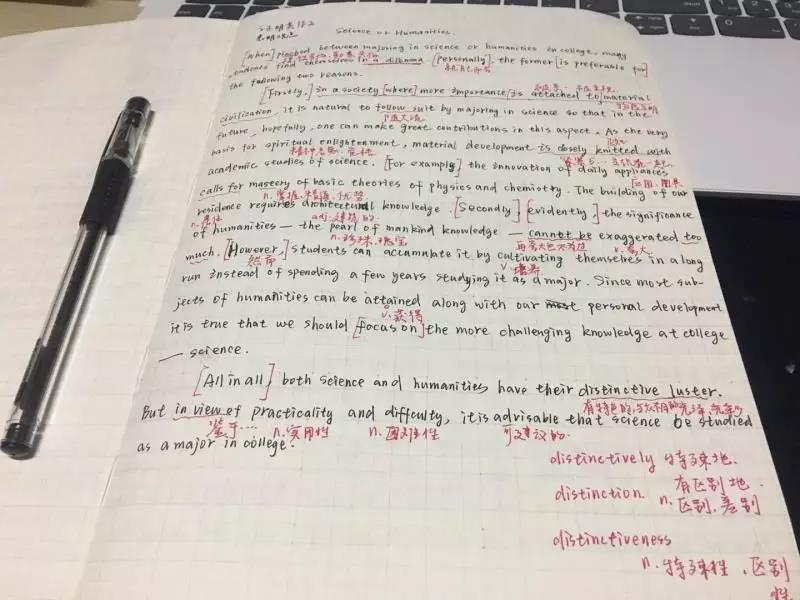 Science or Humanities.
[When] pinched between majoring in science or humanities in college, many
students find themselves in a dilemma. [Personally], the former [is preferable for]
the following two reasons.
[Firstly,] in a society [where] more importance [is attached to] material
civilization, it is natural to follow suit by majoring in science so that in the
future, hopefully, one can make great contributions in this aspect. As the very
basis for spiritual enlightenment, material development is closely knitted with
academic studies of science. [For example,] the innovation of daily appliances
calls for mastery of basic theories of physics and chemistry. The building of our
n.掌握、精通、优势
residence requires architectural knowledge. [Secondly,] [evidently,] the significance
adj. 建筑的
of humanities — the pearl of mankind knowledge — cannot be exaggerated too
n. 珍珠、瑰宝
much. [However,] students can accumulate it by cultivating themselves in a long
然而
v. 培养
run instead of spending a few years studying it as a major. Since most sub-
jects of humanities can be attained along with our personal development
v. 获得
it is true that we should [focus on] the more challenging knowledge at college
— science.
[All in all,] both science and humanities have their distinctive luster.
But in view of practicality and difficulty, it is advisable that science be studied
鉴于… n. 实用性 n. 困难性 可建议的.
as a major in college.
distinctively 特殊地.
有区别地.
distinction n. 区别、差别
distinctiveness
n. 特殊性、区别
性